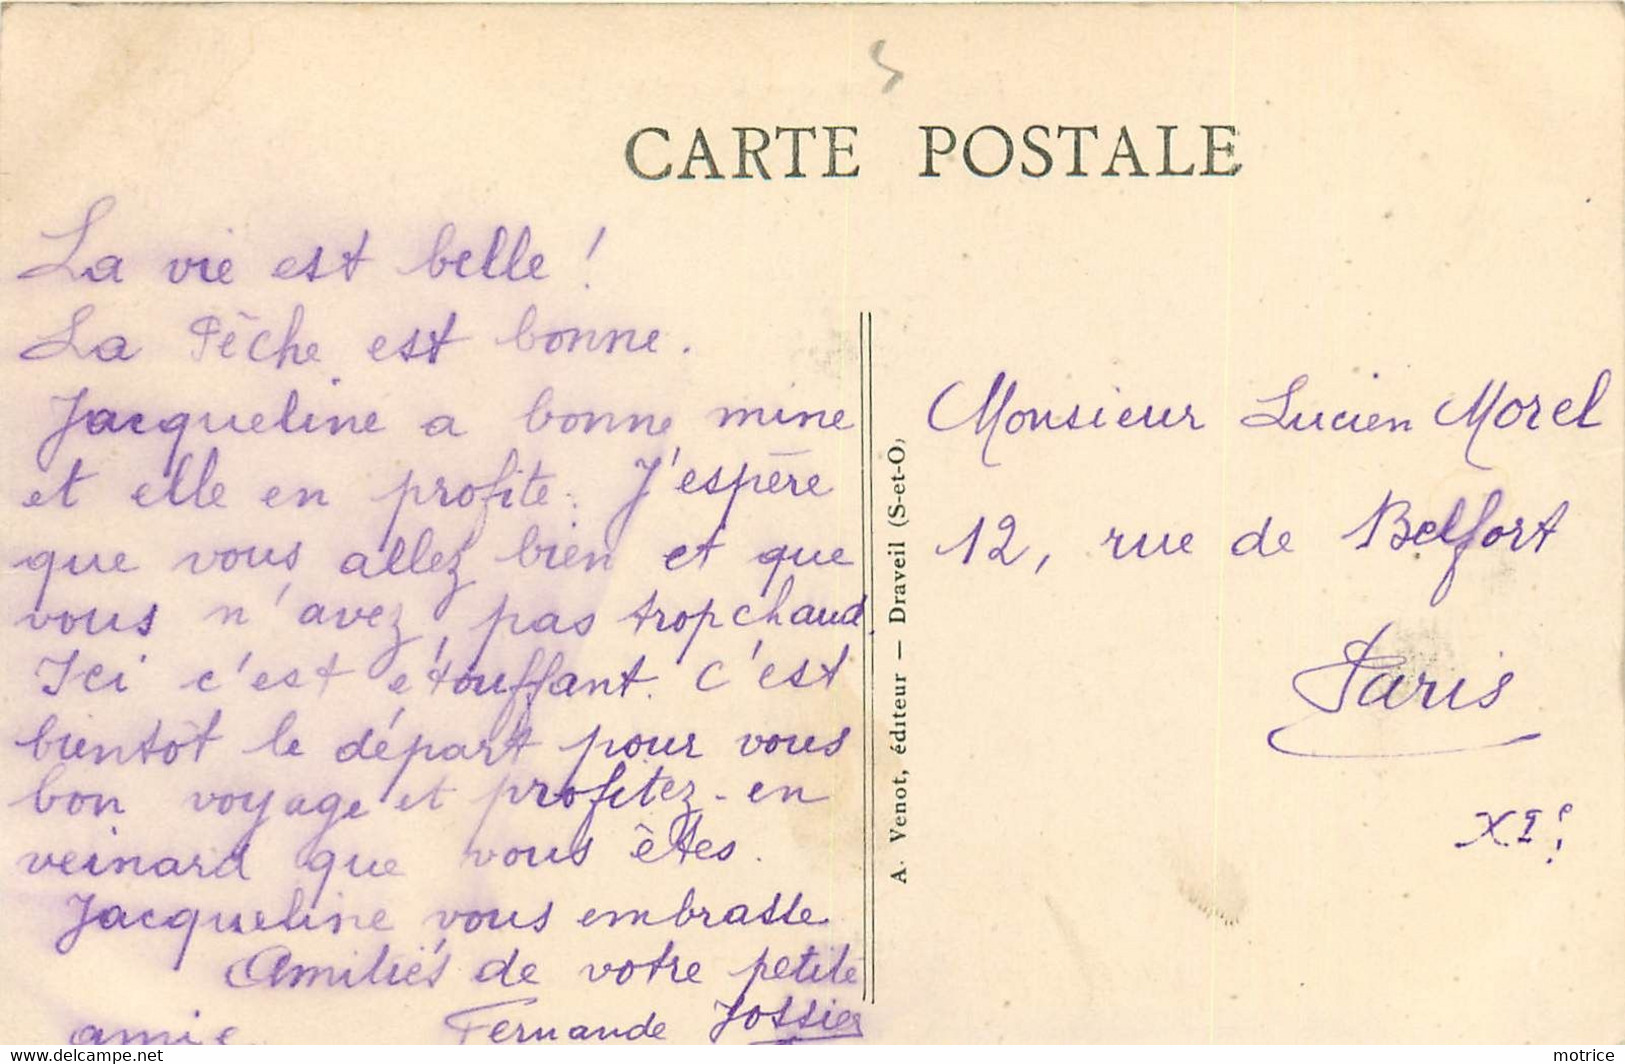 CARTE POSTALE
La vie est belle !
La Pêche est bonne.
Jacqueline a bonne mine
et elle en profite. J'espère
que vous allez bien et que
vous n'avez pas trop chaud.
Ici c'est étouffant. C'est
bientôt le départ pour vous
bon voyage et profitez-en
veinard que vous êtes.
Jacqueline vous embrasse
Amitiés de votre petite
amie. Fernande Jossier
A. Venot, éditeur — Draveil (S-et-O)
Monsieur Lucien Morel
12, rue de Belfort
Paris
XIe
motrice